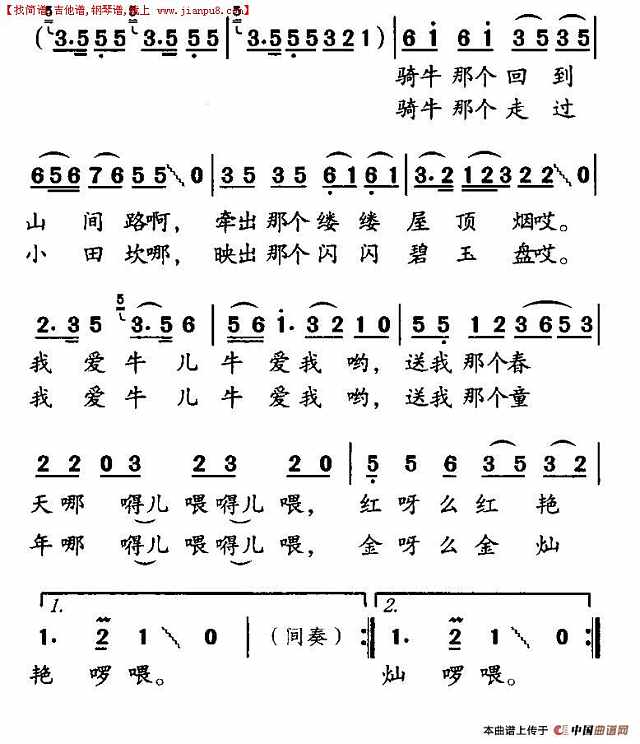 【找简谱,吉他谱,钢琴谱,就上 www.jianpu8.com】
5 5 5
(3·555 3·555 | 3·555 5321) | 6i 6i 35 35
骑牛那个回到
骑牛那个走过
656 76 55 0 | 35 35 61 61 | 3·2 123 22 0
山间路啊,牵出那个缕缕屋顶烟哎。
小田坎哪,映出那个闪闪碧玉盘哎。
2·3 5 5 3·5 6 | 56 1· 32 10 | 55 12 365 53
我爱牛儿牛爱我哟,送我那个春
我爱牛儿牛爱我哟,送我那个童
22 03 23 20 | 5 5 6 35 32
天哪 嘚儿喂嘚儿喂,红呀么红艳
年哪 嘚儿喂嘚儿喂,金呀么金灿
1. 2.
1· 2 1 0 | (间奏) :| 1· 2 1 0 :|
艳啰喂。 灿啰喂。
本曲谱上传于 中国曲谱网